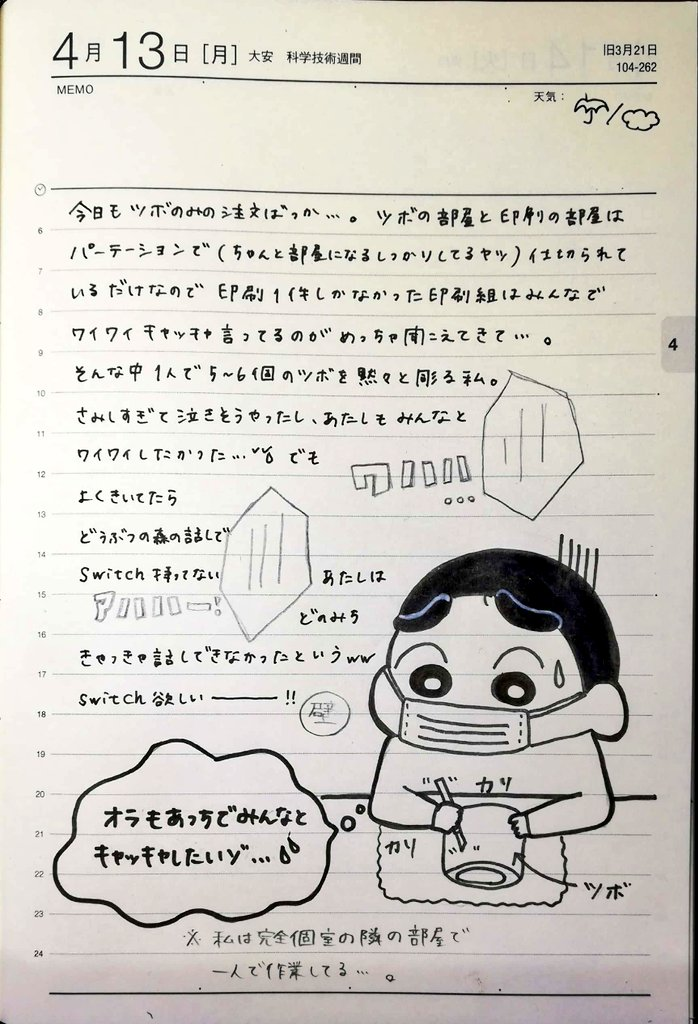 4月13日[月] 大安 科学技術週間
旧3月21日
104-262
MEMO
天気:
今日もツボのみの注文ばっか…。ツボの部屋と印刷の部屋は
パーテーションで(ちゃんと部屋になるしっかりしてるヤツ)仕切られて
いるだけなので印刷1件しかなかった印刷組はみんなで
ワイワイキャッキャ言ってるのがめっちゃ聞こえてきて…。
そんな中1人で5~6個のツボを黙々と彫る私。
さみしすぎて泣きそうやったし、あたしもみんなと
ワイワイしたかった… でも
ワハハハ…
よくきいてたら
どうぶつの森の話しで
Switch持ってない あたしは
アハハハー!
どのみち
きゃっきゃ話しできなかったというww
Switch欲しい———!!
壁
オラもあっちでみんなと
キャッキャしたいゾ…
カリ
カリ
ツボ
※私は完全個室の隣の部屋で
一人で作業してる…。
6
7
8
9
10
11
12
13
14
15
16
17
18
19
20
21
22
23
24
4